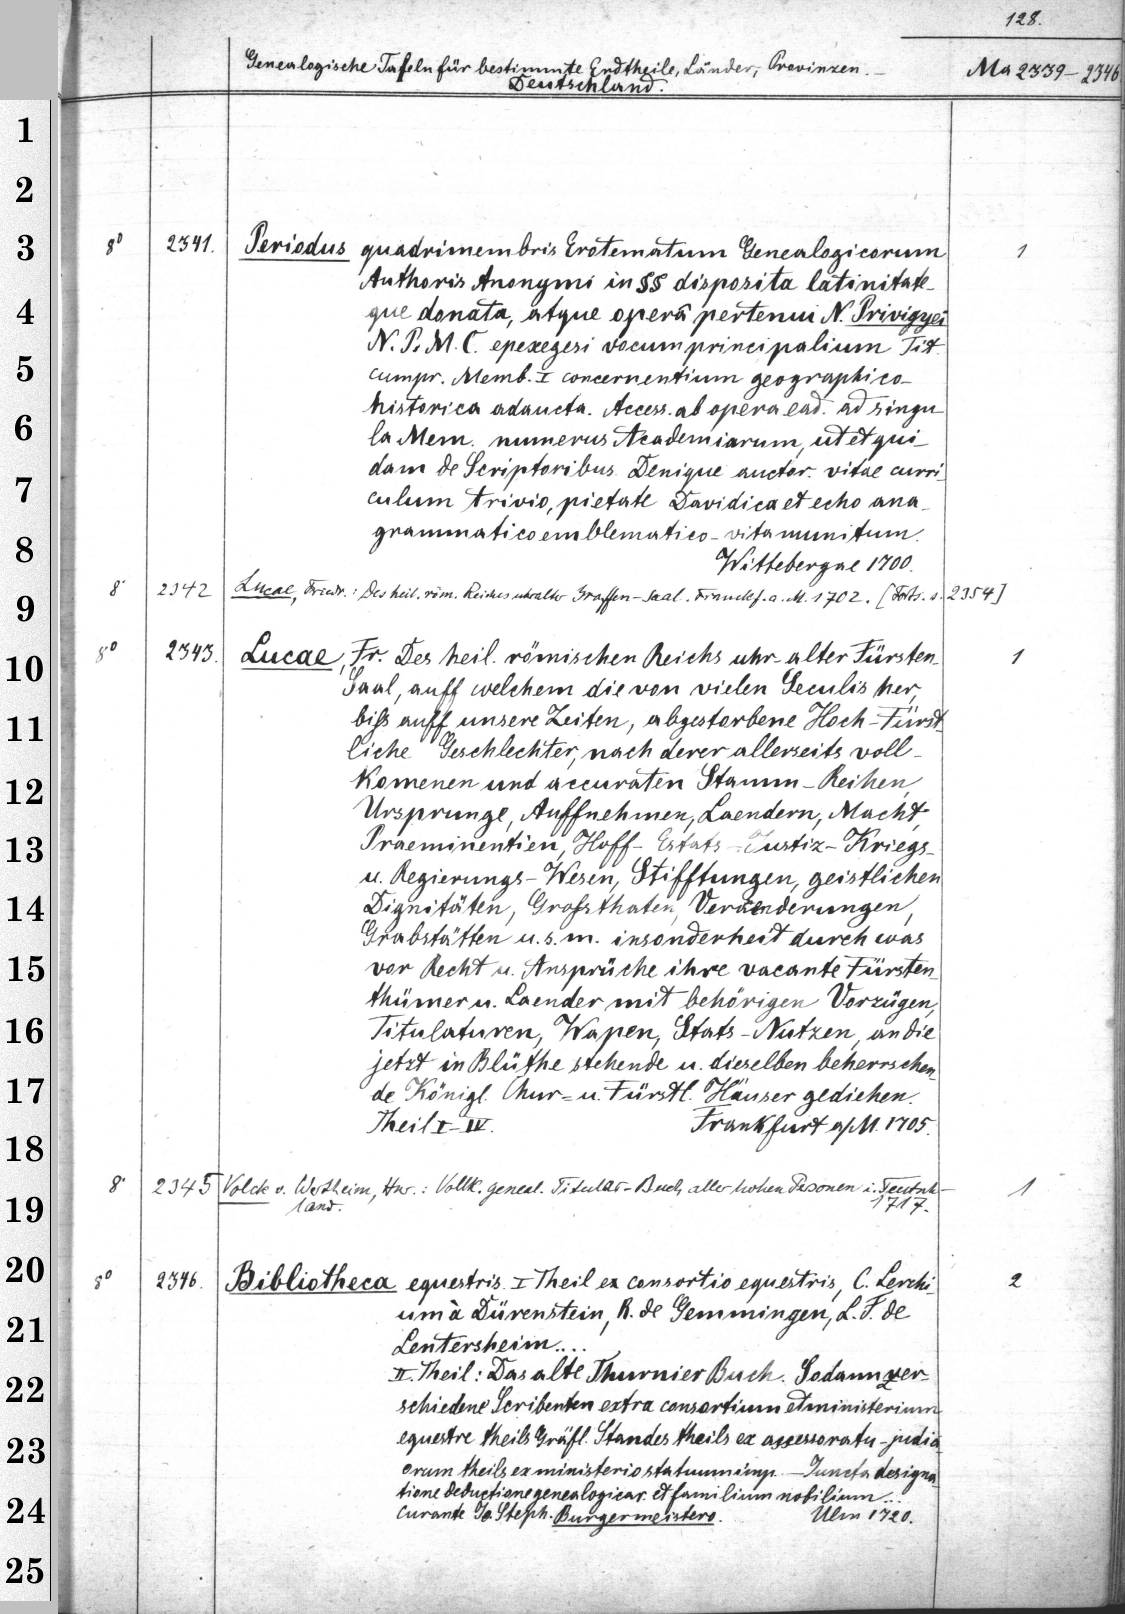 128.
Genealogische Tafeln für bestimmte Erdtheile, Länder, Provinzen. –
Ma 2339–2346
Deutschland.
1
2
3
8° 2341. Periodus quadrimembris Erotematum Genealogicorum 1
Authoris Anonymi in §§ disposita latinitate-
4
que donata, atque operâ pertenui N. Privigyei
N. P. M. C. epexegesi vocum principalium Tit.
5
cumpr. Memb. I concernentium geographico-
historica adaucta. Access. ab opera ead. ad singu-
6
la Mem. numerus Academiarum, ut et qui-
dam de Scriptoribus. Denique auctor. vitae curri-
7
culum trivio, pietate Davidica et echo ana-
grammatico emblematico-vita munitum.
8
Wittebergae 1700.
8° 2342 Lucae, Friedr.: Des heil. röm. Reiches uhralter Graffen-Saal. Franckf. a. M. 1702. [Forts. s. 2354]
9
8° 2343. Lucae, Fr. Des heil. römischen Reichs uhr-alter Fürsten- 1
10
Saal, auff welchem die von vielen Seculis her,
11
biß auff unsere Zeiten, abgestorbene Hoch-Fürst-
liche Geschlechter, nach derer allerseits voll-
komenen und accuraten Stamm-Reihen,
12
Ursprunge, Auffnehmen, Laendern, Macht,
13
Praeminentien, Hoff- Estats- Justiz- Kriegs-
u. Regierungs-Wesen, Stifftungen, geistlichen
14
Dignitäten, Grofsthaten, Veraenderungen,
Grabstätten u. s. m. insonderheit durch was
15
vor Recht u. Ansprüche ihre vacante Fürsten-
thümer u. Laender mit behörigen Vorzügen,
16
Titulaturen, Wapen, Stats-Nutzen, an die
jetzt in Blüthe stehende u. dieselben beherrschen-
17
de Königl. Chur- u. Fürstl. Häuser gediehen.
Theil I–IV. Frankfurt a/M. 1705.
18
8° 2345 Volck v. Wertheim, Hnr.: Vollk. geneal. Titular-Buch aller hohen Personen i. Teutsch- 1
19
land. 1717.
20
8° 2346. Bibliotheca equestris. I Theil ex consortio equestris, C. Lerchi- 2
um à Dürenstein, R. de Gemmingen, L. F. de
21
Lentersheim....
II. Theil: Das alte Thurnier Buch. Sodann ver-
22
schiedene Scribenten extra consortium et ministerium
23
equestre theils Gräfl. Standes theils ex assessoratu-judici-
orum theils ex ministerio statuum imp. – Juncta designa-
tione deductione genealogicar. et familium nobilium...
24
curante Jo Steph. Burgermeistero. Ulm 1720.
25